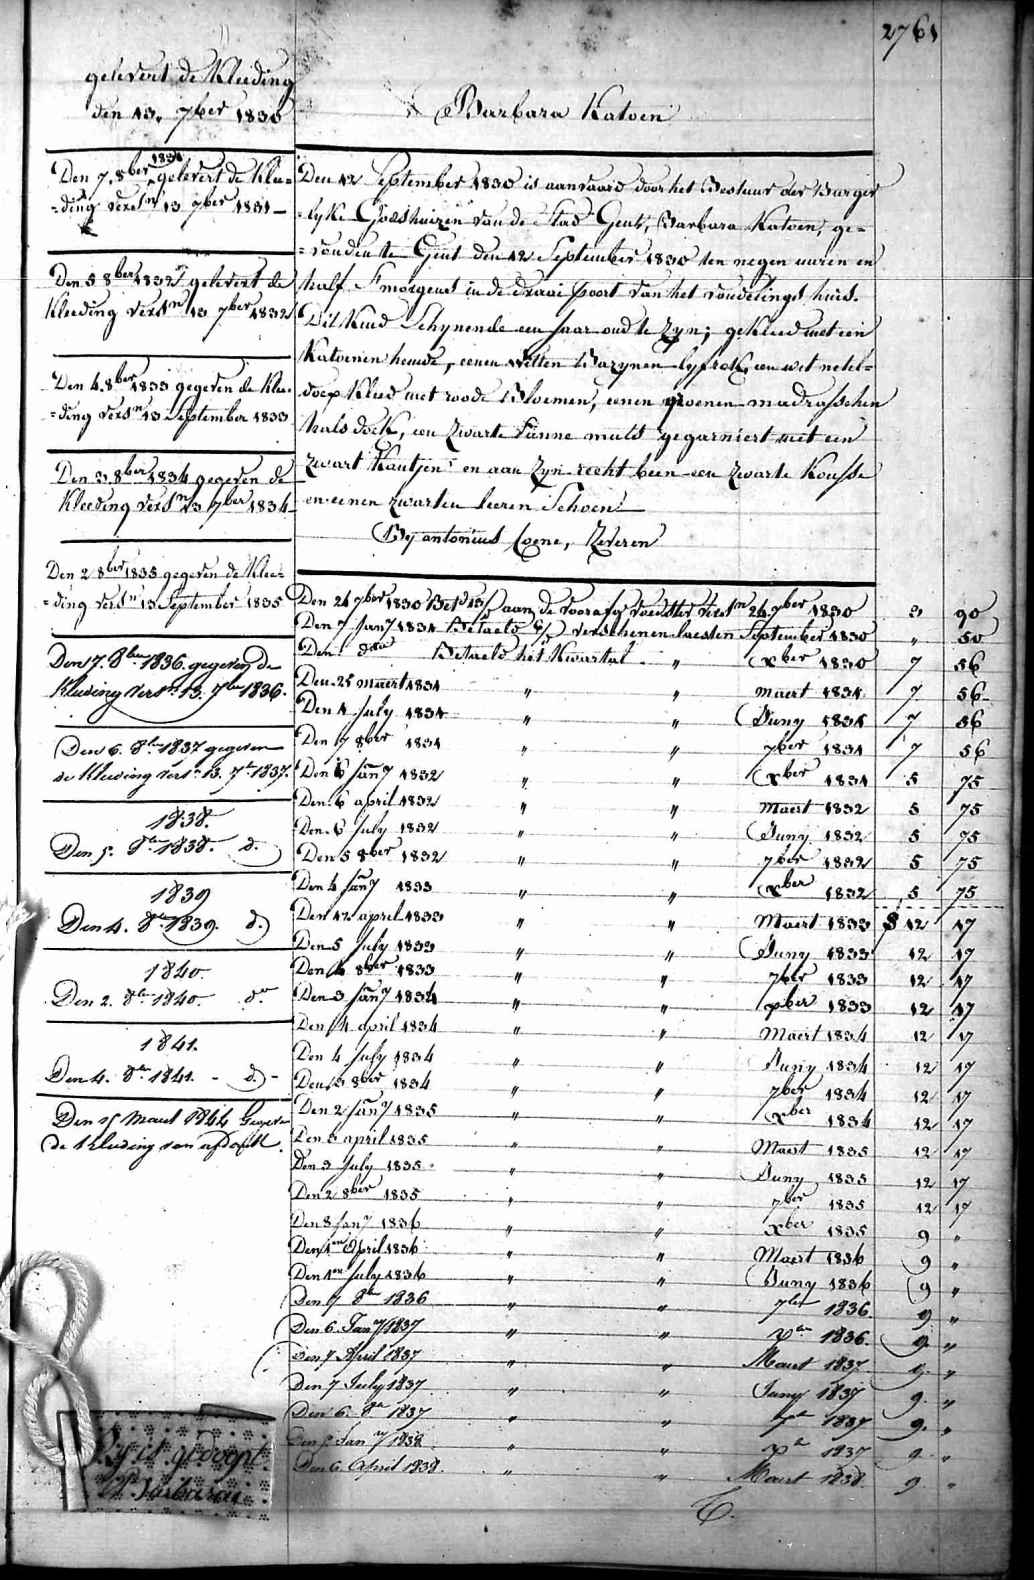 2761
gelevert de Kleeding
den 13. 7ber 1830
Barbara Katoen
Den 7. 8ber 1831 gelevert de Klee=
=ding versn 13 7ber 1831 -
Den 5 8ber 1832 gelevert de
Kleeding versn 13 7ber 1832
Den 4. 8ber 1833 gegeven de Klee.
=ding versn 13 September 1833
Den 3. 8ber 1834 gegeven de
Kleeding versn 13 7ber 1834
Den 2 8ber 1835 gegeven de Klee=
=ding versn 13 September 1835
Den 7. 8ber 1836. gegeven de
Kleeding versn 13. 7ber 1836.
Den 6. 8br 1837 gegeven
de Kleeding versn 13. 7br 1837.
1838.
Den 5. 8br 1838. d.
1839
Den 4. 8ber 1839. d.
1840.
Den 2. 8br 1840. do
1841.
Den 4. 8br 1841. - d. -
Den 15 Maart 1844 Gegeven
de Kleeding van
Den 12 September 1830 is aanvaard door het Bestuur der Burger
=lyke Godshuizen van de Stad Gent, Barbara Katoen, ge=
=vonden te Gent den 12 September 1830 ten negen uuren en
half s'morgens in de draai poort van het vondelings huis.
Dit Kind Schynende een Jaar oud te Zyn; gekleed met een
Katoenen hemde, eenen witten Bazynen lyfrok, een wit netel=
doek Kleed met roode Bloemen, eenen groenen madrasschen
hals doek, een Zwarte muts gegarniert met een
Zwart Kantjen en aan Zyn recht been een Zwarte Kousse
en eenen zwarten leeren Schoen.
By antonius Coene, Zeveren
Den 24 7ber 1830 Bet. aan de voorsz. voedster versn 24 7ber 1830 3 90
Den 7 Jany 1831 Betaeld verschenen laesten September 1830 " 50
Den do Betaeld het Kwartal " Xber 1830 7 56
Den 25 maert 1831 " " maert 1831 7 56
Den 4 July 1831 " " Juny 1831 7 56
Den 7 8ber 1831 " " 7ber 1831 7 56
Den 6 Jany 1832 " " Xber 1831 5 75
Den 6 april 1832 " " Maert 1832 5 75
Den 6 July 1832 " " Juny 1832 5 75
Den 5 8ber 1832 " " 7ber 1832 5 75
Den 4 Jany 1833 " " Xber 1832 5 75
Den 12 april 1833 " " Maert 1833 12 17
Den 5 July 1833 " " Juny 1833 12 17
Den 4 8ber 1833 " " 7ber 1833 12 17
Den 3 Jany 1834 " " xber 1833 12 17
Den 4 april 1834 " " Maert 1834 12 17
Den 4 July 1834 " " Juny 1834 12 17
Den 3 8ber 1834 " " 7ber 1834 12 17
Den 2 Jany 1835 " " Xber 1834 12 17
Den 3 april 1835 " " Maert 1835 12 17
Den 3 July 1835 " " Juny 1835 12 17
Den 2 8ber 1835 " " 7ber 1835 12 17
Den 8 Jany 1836 " " Xber 1835 9 "
Den 1en April 1836 " " Maert 1836 9 "
Den 1en July 1836 " " Juny 1836 9 "
Den 7 8br 1836 " " 7ber 1836. 9 "
Den 6. Jany 1837 " " Xber 1836. 9. "
Den 7 April 1837 " " Maert 1837 9. "
Den 7 July 1837 " " Juny 1837 9. "
Den 6. 8br 1837 " " 7br 1837 9. "
Den 5 Jany 1838 " " Xbr 1837 9. "
Den 6 April 1838. " " Maert 1838 9 "
Zy is gedoopt
Barbara